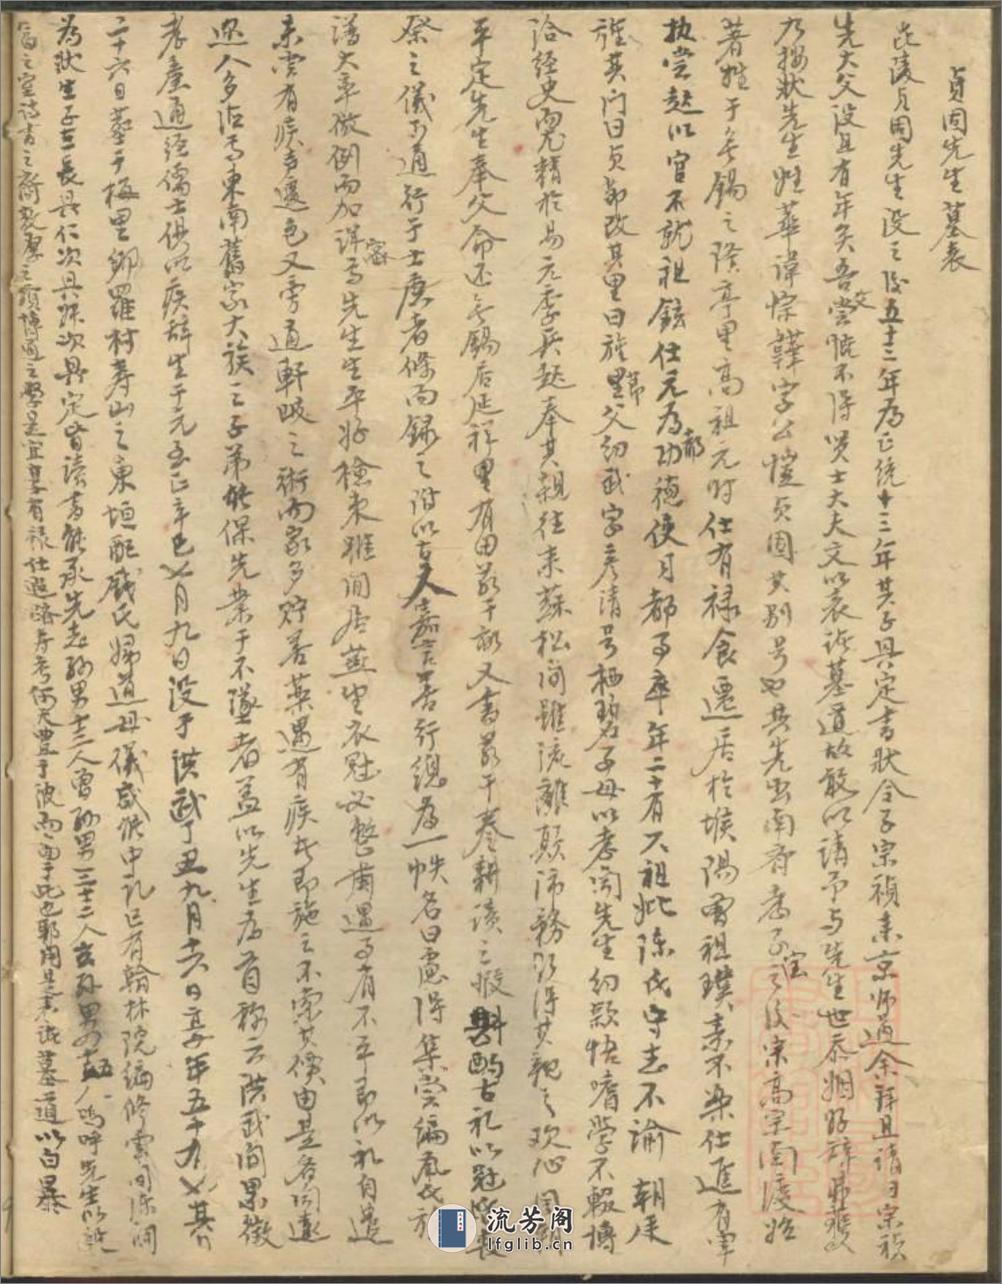 貞固先生墓表
毘陵貞固先生沒之後五十二年為正統十三年其子興定書狀令子宗禎來京師過余拜且請曰宗禎
先大父沒且有年矣吾父嘗恨不得賢士大夫文以表諸墓道故敢以請予與先生世忝姻好辭弗獲
乃按狀先生姓華諱悰韡字公愷貞固其別號也其先出南齊孝子寶之後宋高宗南渡始
著姓于無錫之隆亭里高祖元時仕有祿食遷居於堠陽曾祖璞素不樂仕進有掌
執嘗起以官不就祖鉉仕元為功德使司都事卒年二十有六祖妣陳氏守志不渝朝廷
旌其門曰貞節改其里曰旌節里父幼武字彥清號栖碧子母以孝聞先生幼穎悟嗜學不輟博
洽經史尤精於易元季兵起奉其親往來蘇松間雖流離顛沛務得其親之歡心国朝
平定先生奉父命還無錫居延祥里有田若干畝又書若干卷耕讀之暇斟酌古禮以冠婚喪
祭之儀可通行于士庶者條而錄之附以古人嘉言善行總為一帙名曰慮得集嘗編
譜大率做例而加詳密焉先生生平好檢束雖閒居燕坐衣冠必整肅遇事有不平即以禮自遣
未嘗有疾言遽色又旁通軒岐之術內家多貯善藥遇有疾者即施之不索其價由是名聞遠
迩人多占焉東南舊家大族之子弟能保先業于不墜者蓋以先生為首称云洪武間累徵
孝廉通經儒士俱以疾辭生于元至正辛巳七月九日沒于洪武丁丑九月十六日享年五十有七其
二十六日葬于梅里鄉羅村壽山之東垣配錢氏婦道母儀咸供中礼已有翰林院編修雲間
為狀生子三長興仁次興次興定皆讀書能承先志孫男十三人曾孫男三十二人玄孫男五人嗚呼先生以
之望詩書之裔敦厚之質博通之學是宜享有祿仕遐臨壽考何天豊于彼而嗇于此也耶用是表諸墓道以白
流芳阁
lfglib.cn